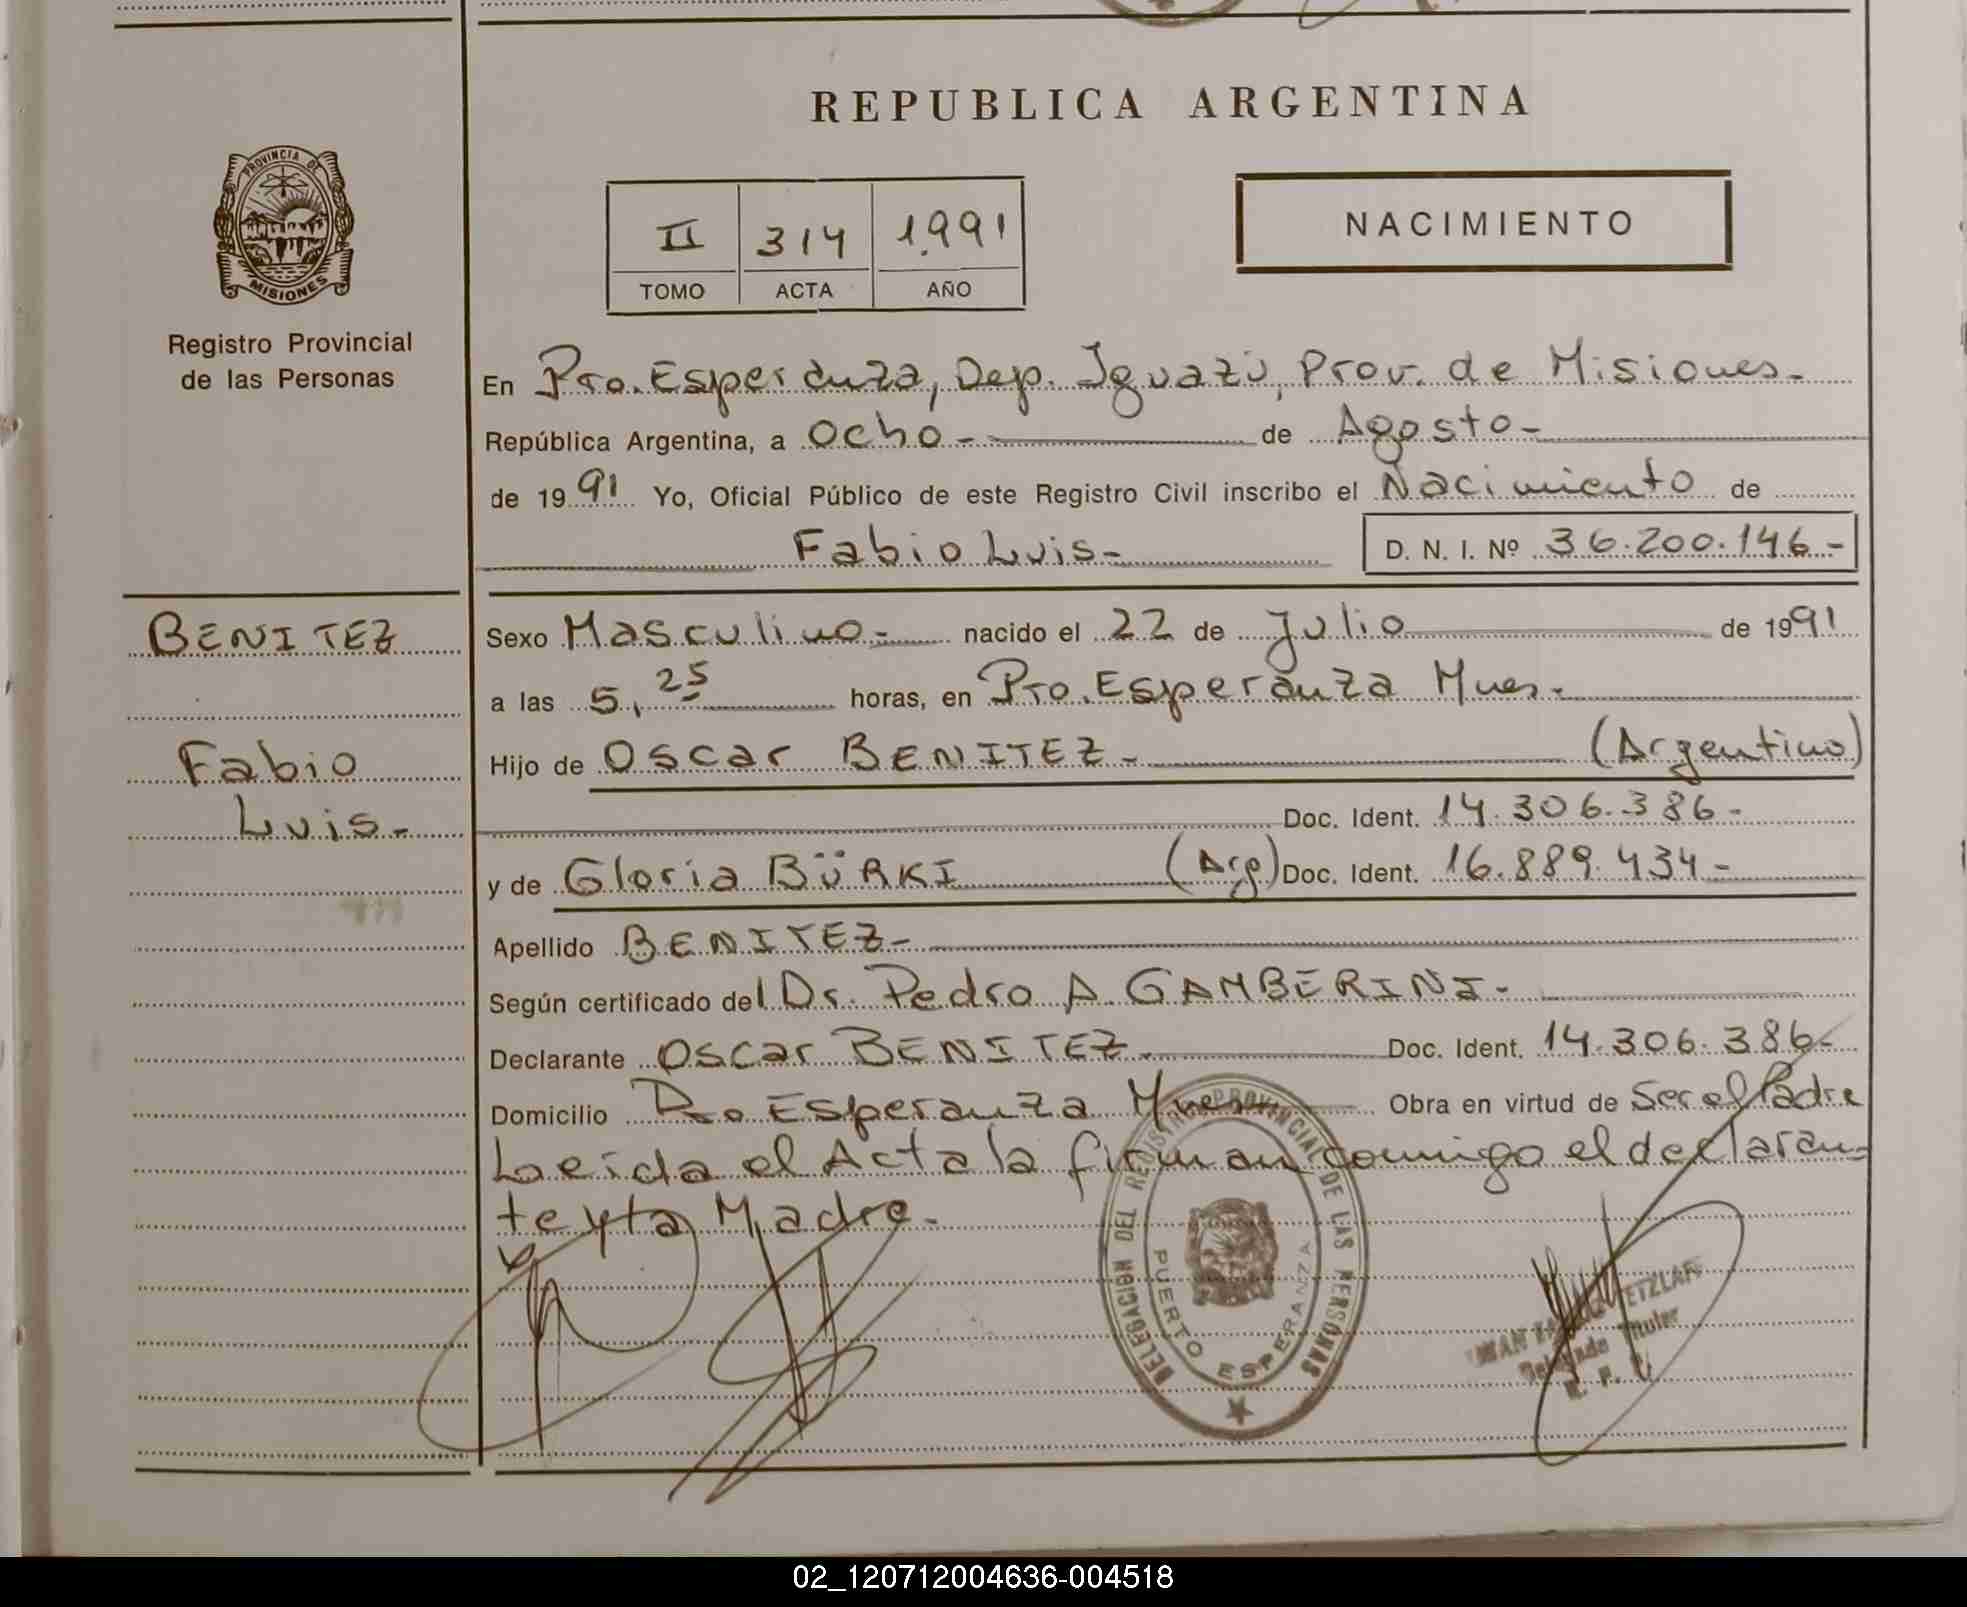 REPUBLICA ARGENTINA
PROVINCIA DE
MISIONES
Registro Provincial
de las Personas
II 314 1.991
TOMO ACTA AÑO
NACIMIENTO
En Pto. Esperanza, Dep. Iguazú, Prov. de Misiones.-
República Argentina, a Ocho.- de Agosto.-
de 1991 Yo, Oficial Público de este Registro Civil inscribo el Nacimiento de
Fabio Luis.- D. N. I. Nº 36.200.146.-
BENITEZ
Fabio
Luis.-
Sexo Masculino.- nacido el 22 de Julio de 1991
a las 5,25 horas, en Pto. Esperanza Mnes.-
Hijo de Oscar BENITEZ.- (Argentino)
Doc. Ident. 14.306.386.-
y de Gloria BÜRKI (Arg) Doc. Ident. 16.889.434.-
Apellido BENITEZ.-
Según certificado del Dr. Pedro A. GAMBERINI.-
Declarante Oscar BENITEZ.- Doc. Ident. 14.306.386.-
Domicilio Pto Esperanza Mnes.- Obra en virtud de Ser el Padre
Leida el Acta la firman conmigo el declaran=
te y la Madre.-
DELEGACION DEL REGISTRO PROVINCIAL DE LAS PERSONAS
PUERTO ESPERANZA
Delegado Titular
02_120712004636-004518